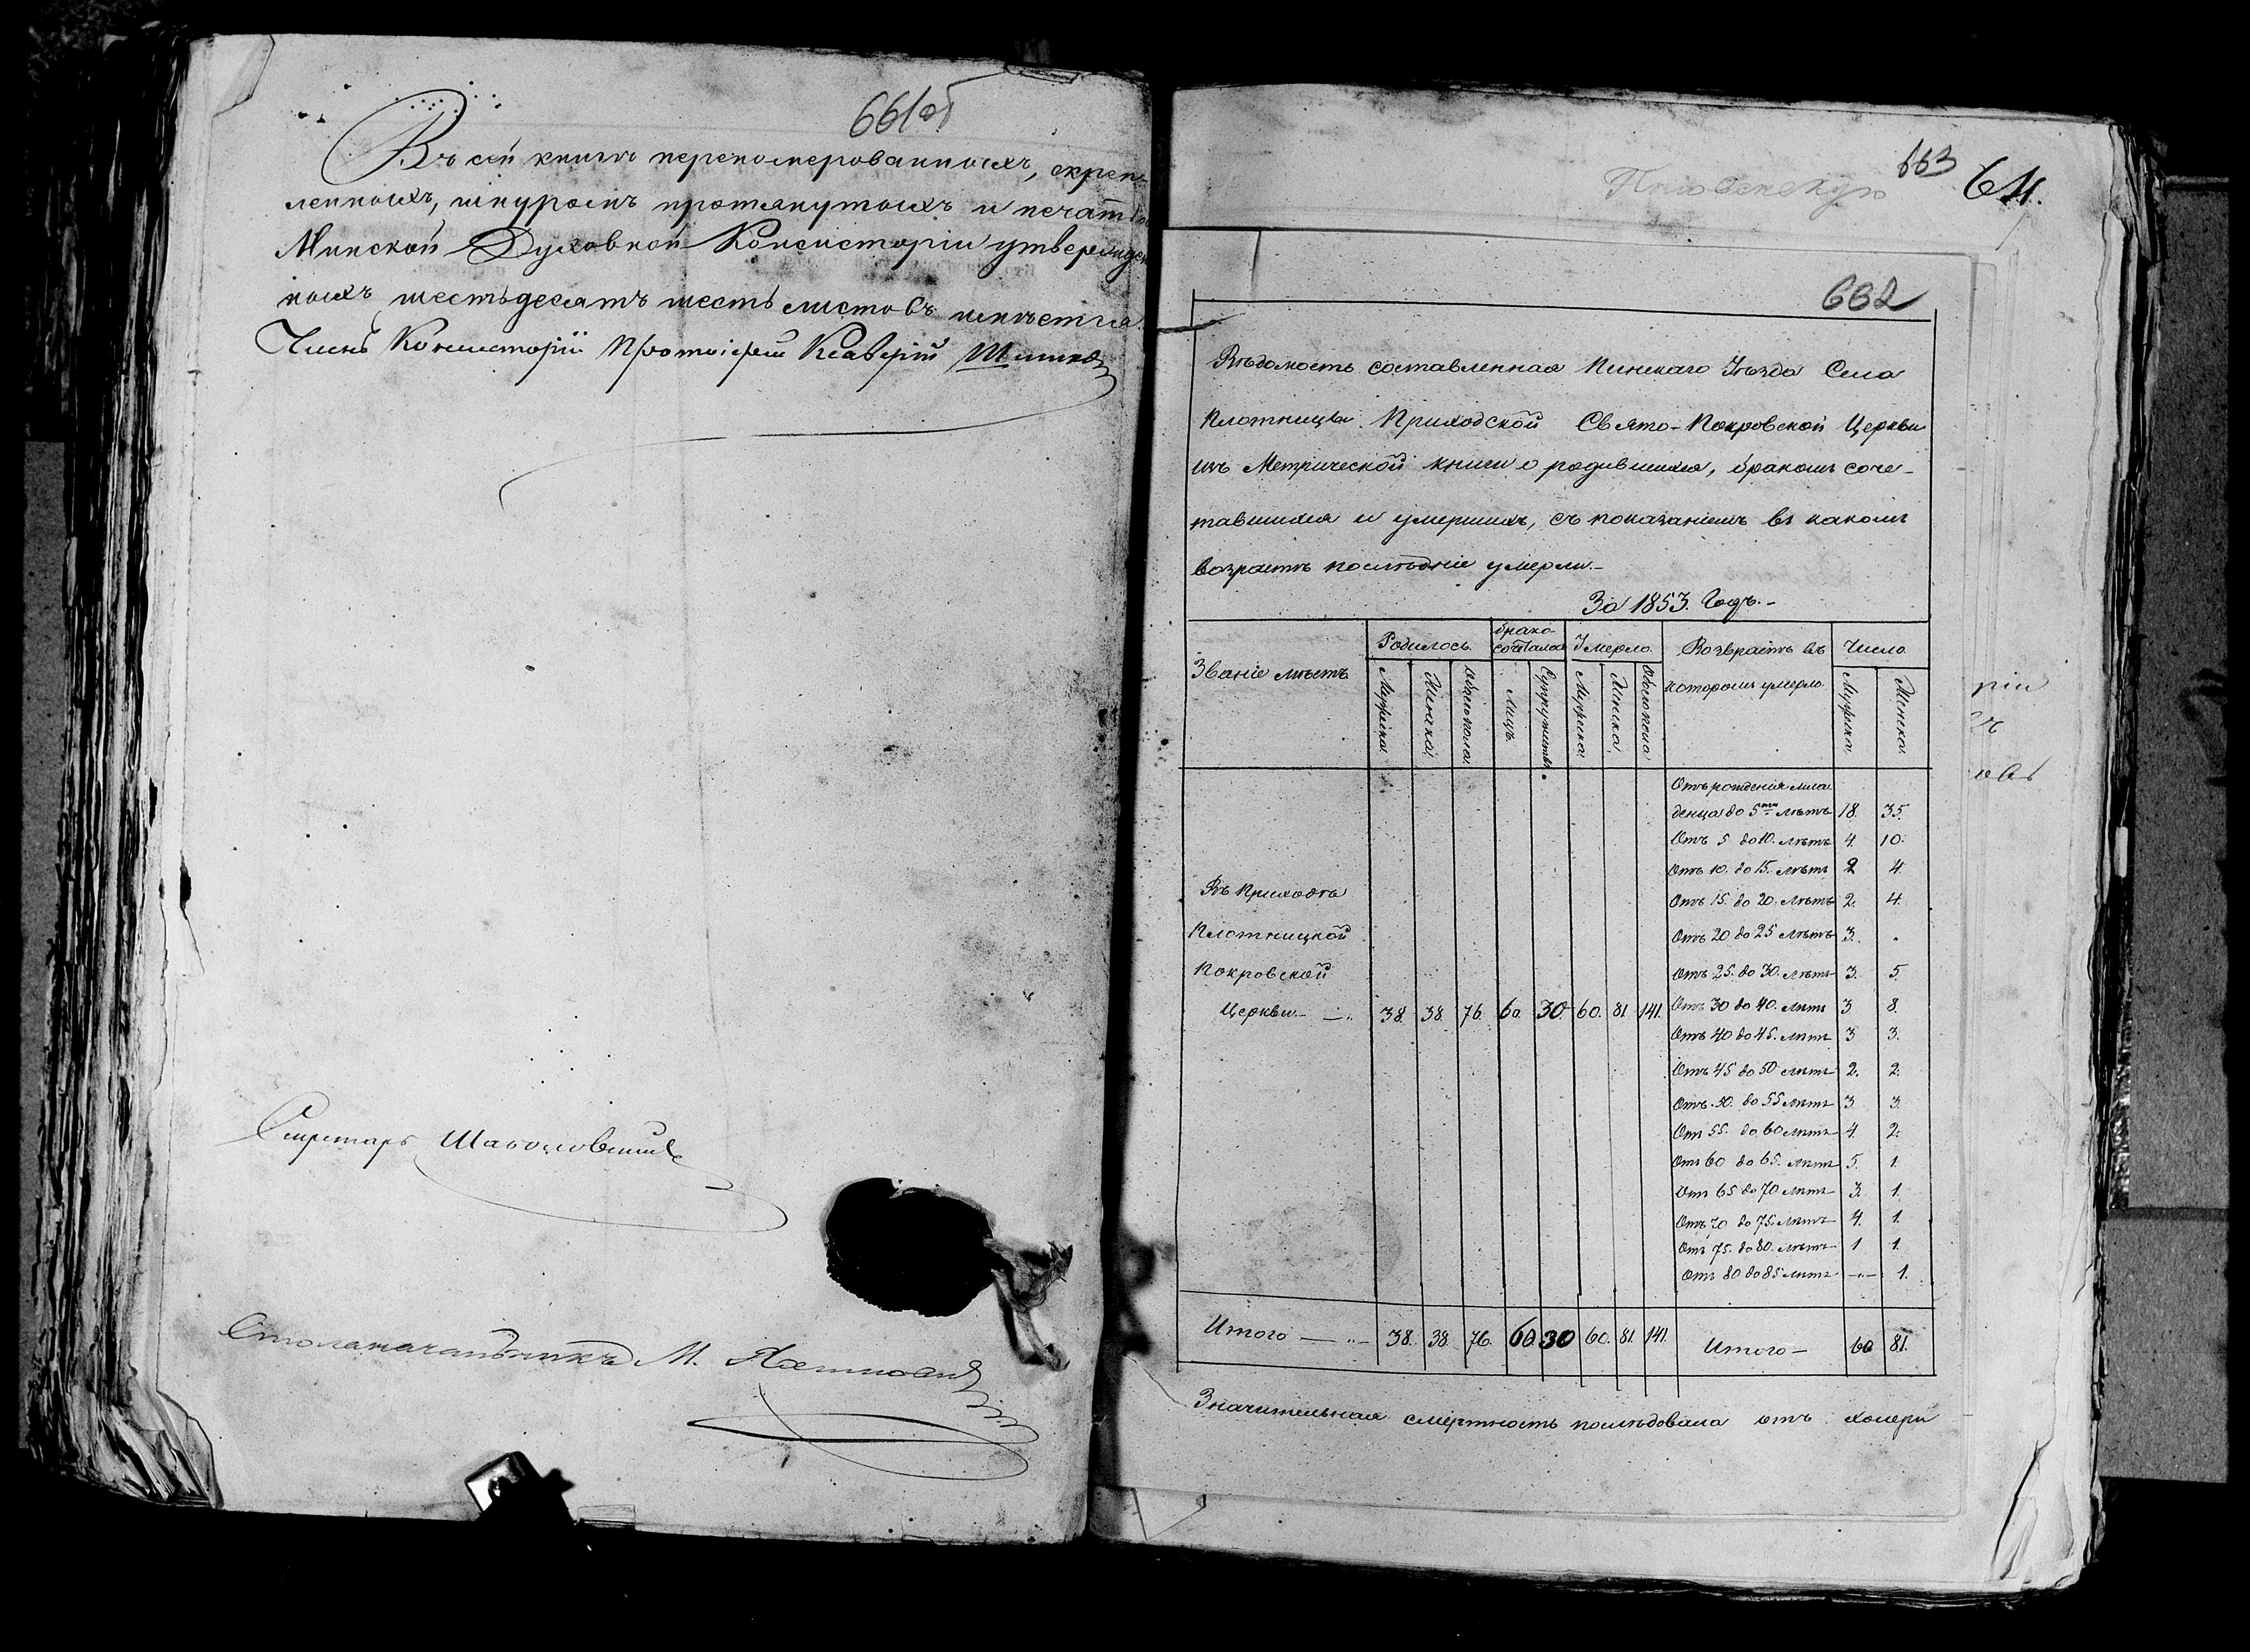 661об
Въ сей книгѣ перепомерованныхъ, скреп-
ленныхъ, шнуромъ протянутыхъ и печатью
Минской Духовной Консисторіи утвержден
ныхъ шестьдесятъ шесть листовъ имѣется.
Членъ Консисторіи Протоіерей Ксаверій
Секретарь
Столоначальникъ М.
663 64.
662
Вѣдомость составленная Пинскаго Уѣзда Села
Плотницы Приходской Свято-Покровской Церкви
изъ Метрической книги о родившихся, бракомъ соче-
тавшихся и умершихъ, съ показаніемъ въ какомъ
возрастѣ послѣдніе умерли.-
За 1853. Годъ.-
Званіе мѣстъ
Родилось
Брако-
сочеталось
Умерло
Возрастъ въ
которомъ умерло
Число
Мужска
Женска
Обоего пола
Лицъ
Супружествъ
Мужска
Женска
Обоего пола
Мужска
Женска
Отъ рожденія мла
денца до 5ти лѣтъ 18. 35.
Отъ 5 до 10. лѣтъ 4. 10.
Отъ 10. до 15. лѣтъ 2 4.
Отъ 15. до 20. лѣтъ 2. 4.
Отъ 20 до 25 лѣтъ 3. .
Отъ 25. до 30. лѣтъ 3. 5.
Отъ 30 до 40. лѣтъ 3 8.
Отъ 40 до 45. лѣтъ 3 3.
Отъ 45 до 50 лѣтъ 2. 2.
Отъ 50. до 55 лѣтъ 3. 3.
Отъ 55. до 60 лѣтъ 4. 2.
Отъ 60 до 65. лѣтъ 5. 1.
Отъ 65 до 70 лѣтъ 3. 1.
Отъ 70 до 75. лѣтъ 4. 1.
Отъ 75. до 80. лѣтъ 1 1.
Отъ 80 до 85 лѣтъ —"— 1.
Въ Приходѣ
Плотницкой
Покровской
Церкви. —". 38. 38. 76. 60. 30. 60. 81. 141.
Итого —"— 38. 38. 76. 60 30 60. 81. 141. Итого — 60 81.
Значительная смертность послѣдовала отъ холеры